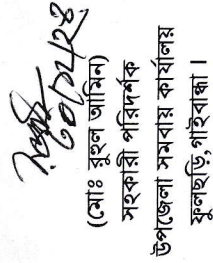 (মোঃ রুহুল আমিন)
সহকারী পরিদর্শক
উপজেলা সমবায় কার্যালয়
ফুলছড়ি, গাইবান্ধা।